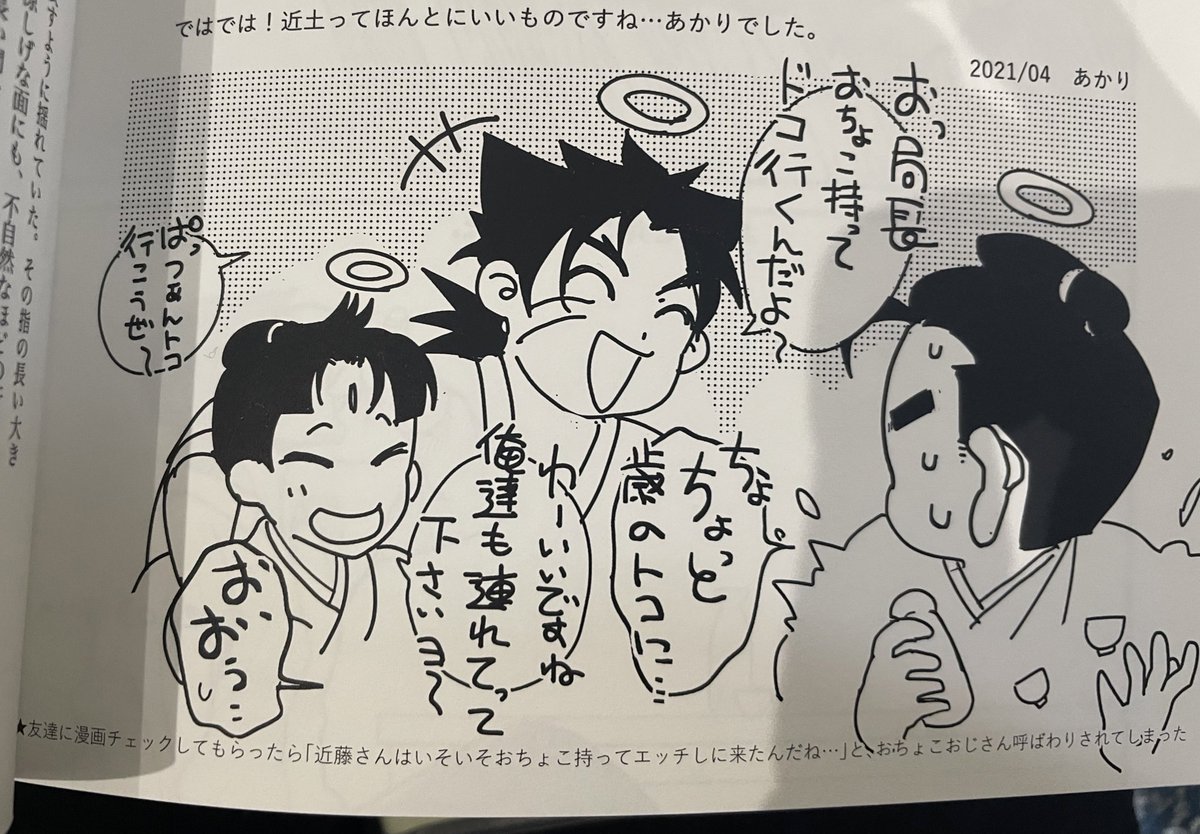 ではでは！近土ってほんとにいいものですね…あかりでした。
2021/04　あかり
おっ局長
おちょこ持って
ドコ行くんだよ～
ちょ…
ちょっと
歳のトコに…
わーいいですね
俺達も連れてって
下さいヨ～
ぱっつぁんトコ
行こうぜ～
お、
おう…
★友達に漫画チェックしてもらったら「近藤さんはいそいそおちょこ持ってエッチしに来たんだね…」と、おちょこおじさん呼ばわりされてしまった
すように揺れていた。その指の長い大き
しげな面にも、不自然なほど